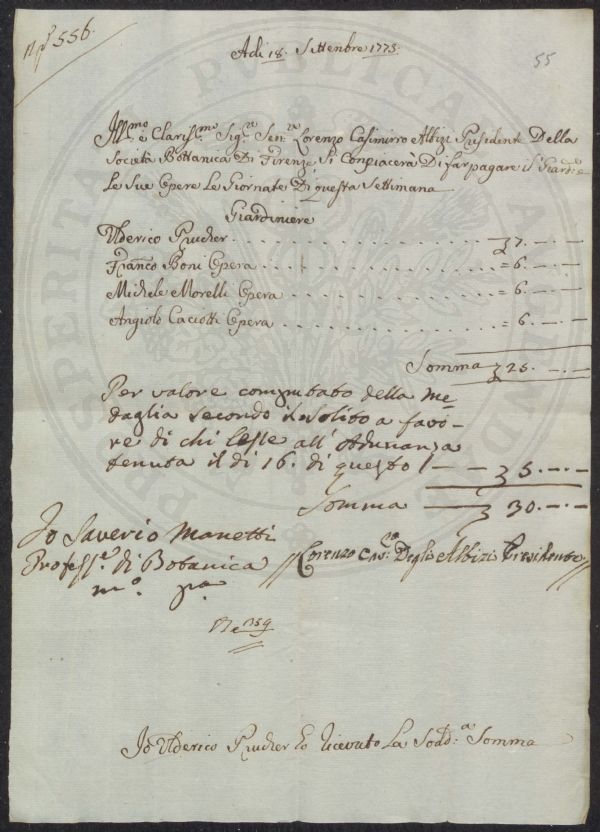 N° 556.
55
Adì 18. Settenbre 1775.
Ill.mo e Clariss.mo Sig.re Sen.re Lorenzo Casimirro Albizi Presidente Della
Società Bottanica Di Firenze Si Conpiacerà Di far pagare il Giard.e
Le Sue Opere Le Giornate Di questa Settimana
Giardiniere
Ulderico Prucher 7.—.—
Franco Boni Opera = 6.—.—
Michele Morelli Opera = 6.—.—
Angiolo Caciotti Opera = 6.—.—
Somma 25.—.—
Per valore computato della me-
daglia secondo il solito a favo-
re di chi lesse all' Adunanza
tenuta il dì 16. di questo — — 5.—.—
Somma — 30.—.—
Io Saverio Manetti
Profess.e di Botanica
m.o p.a
Lorenzo Cas.ro Degli Albizi Presidente
N° 159
Io Ulderico Prucher ho ricevuto La Sodd.a Somma